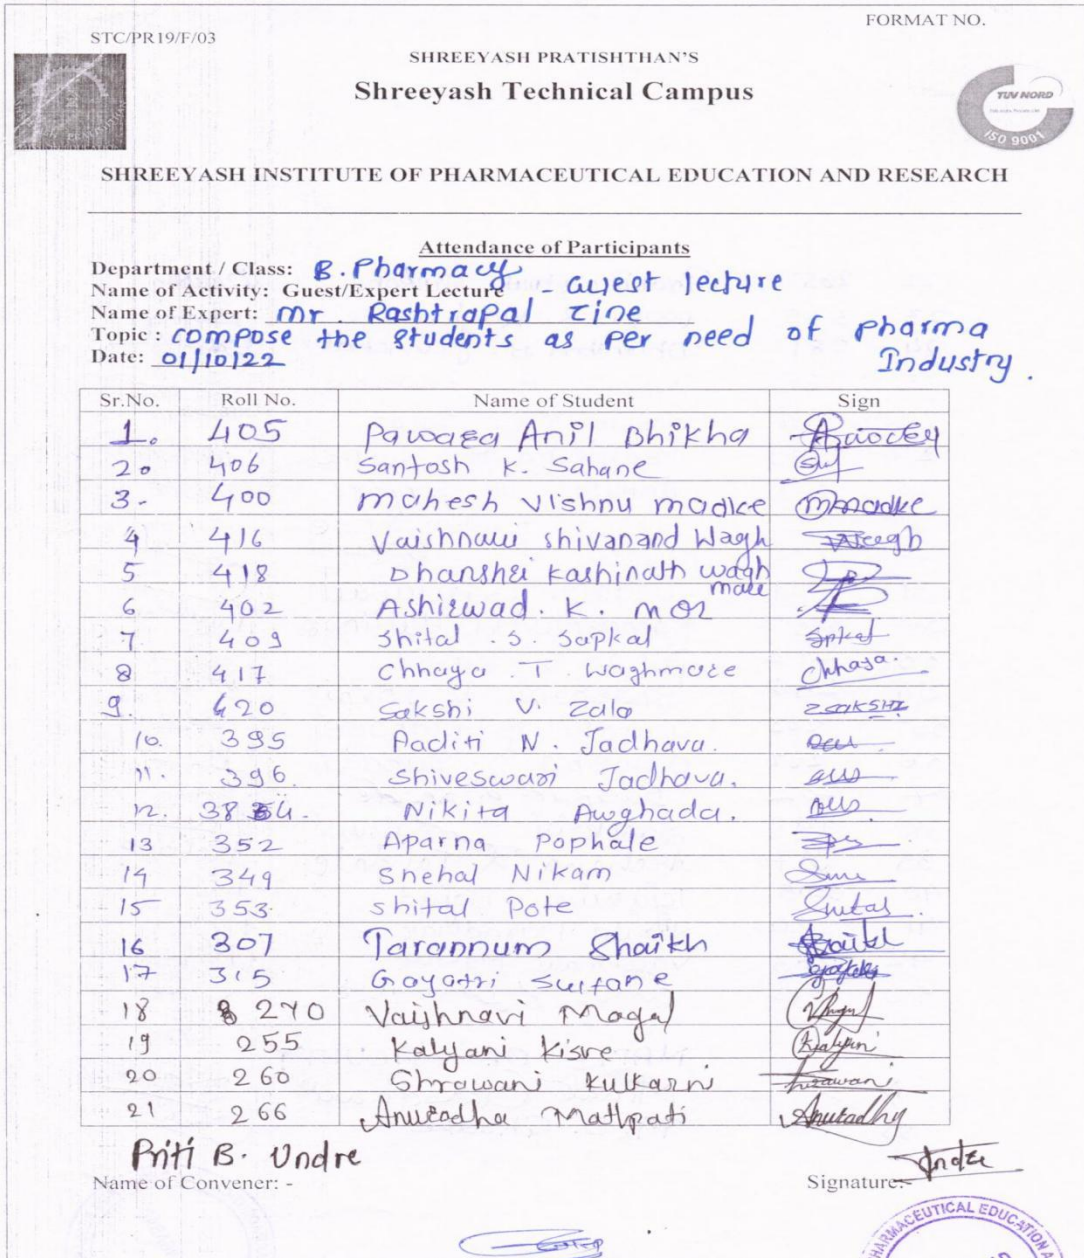 FORMAT NO.
STC/PR19/F/03
SHREEYASH PRATISHTHAN'S
Shreeyash Technical Campus
TUV NORD
ISO 9001
SHREEYASH INSTITUTE OF PHARMACEUTICAL EDUCATION AND RESEARCH
Attendance of Participants
Department / Class: B. Pharmacy
Name of Activity: Guest/Expert Lecture - Guest lecture
Name of Expert: Mr Rashtrapal Zine
Topic : compose the students as per need of pharma Industry.
Date: 01/10/22
Sr.No. Roll No. Name of Student Sign
1. 405 Pawara Anil Bhikha
2. 406 Santosh K. Sahane
3. 400 Mahesh Vishnu Madke MMadke
4 416 Vaishnavi Shivanand Wagh Wagh
5 418 Dhanshri Kashinath waghmare
6 402 Ashirwad. K. More
7. 409 Shital . S. Sapkal Spkal
8 417 Chhaya . T. Waghmare Chhaya.
9. 420 Sakshi V. Zala ZSAKSHI
10. 395 Aaditi N. Jadhava.
11. 396 Shiveswari Jadhava.
12. 384. Nikita Awghada.
13 352 Aparna Pophale
14 349 Snehal Nikam
15 353 Shital Pote Shital
16 307 Tarannum Shaikh Shaikh
17 315 Gayatri Surtane
18 270 Vaishnavi Magal
19 255 Kalyani Kisve Kalyani
20 260 Shrawani Kulkarni Shrawani
21 266 Anuradha Mathpati Anuradha
Priti B. Undre
Name of Convener: - Signature:-
PHARMACEUTICAL EDUCATION